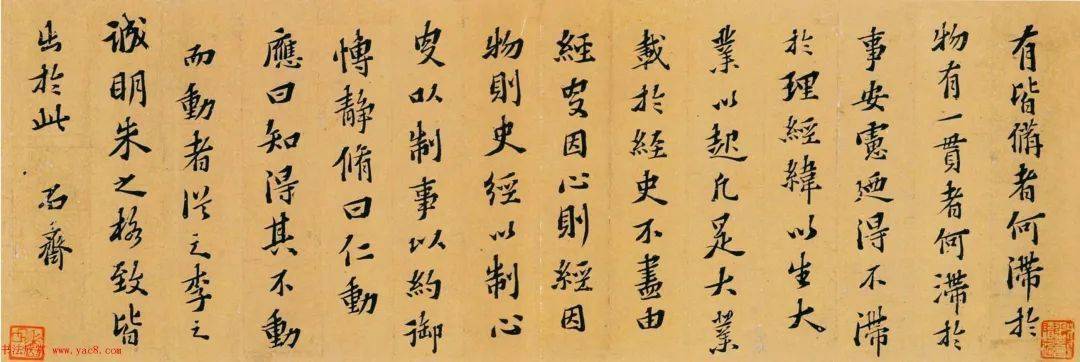 有皆備者何滯於
物有一貫者何滯於
事安慮迺得不滯
於理經緯以生大
業以起凡是大業
載於経史不盡由
經史因心則經因
物則史經以制心
史以制事以約御
博靜脩曰仁動
應曰知得其不動
而動者従之李之
誠明朱之格致皆
出於此 石齋
书法欣赏
www.yac8.com